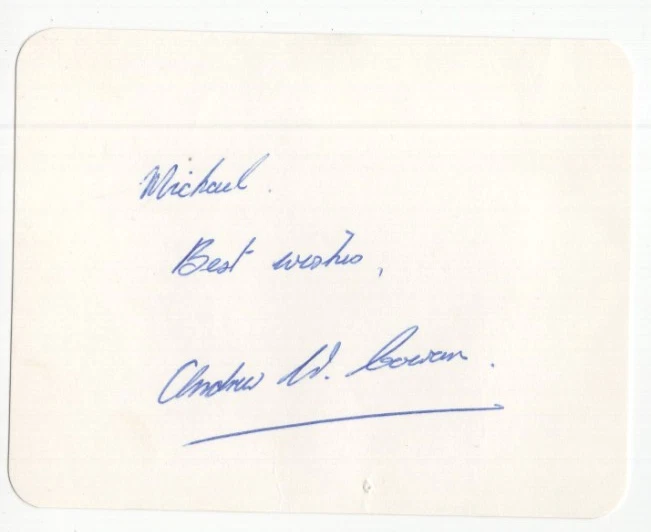 Michael.
Best wishes,
Andrew W. Cowan.